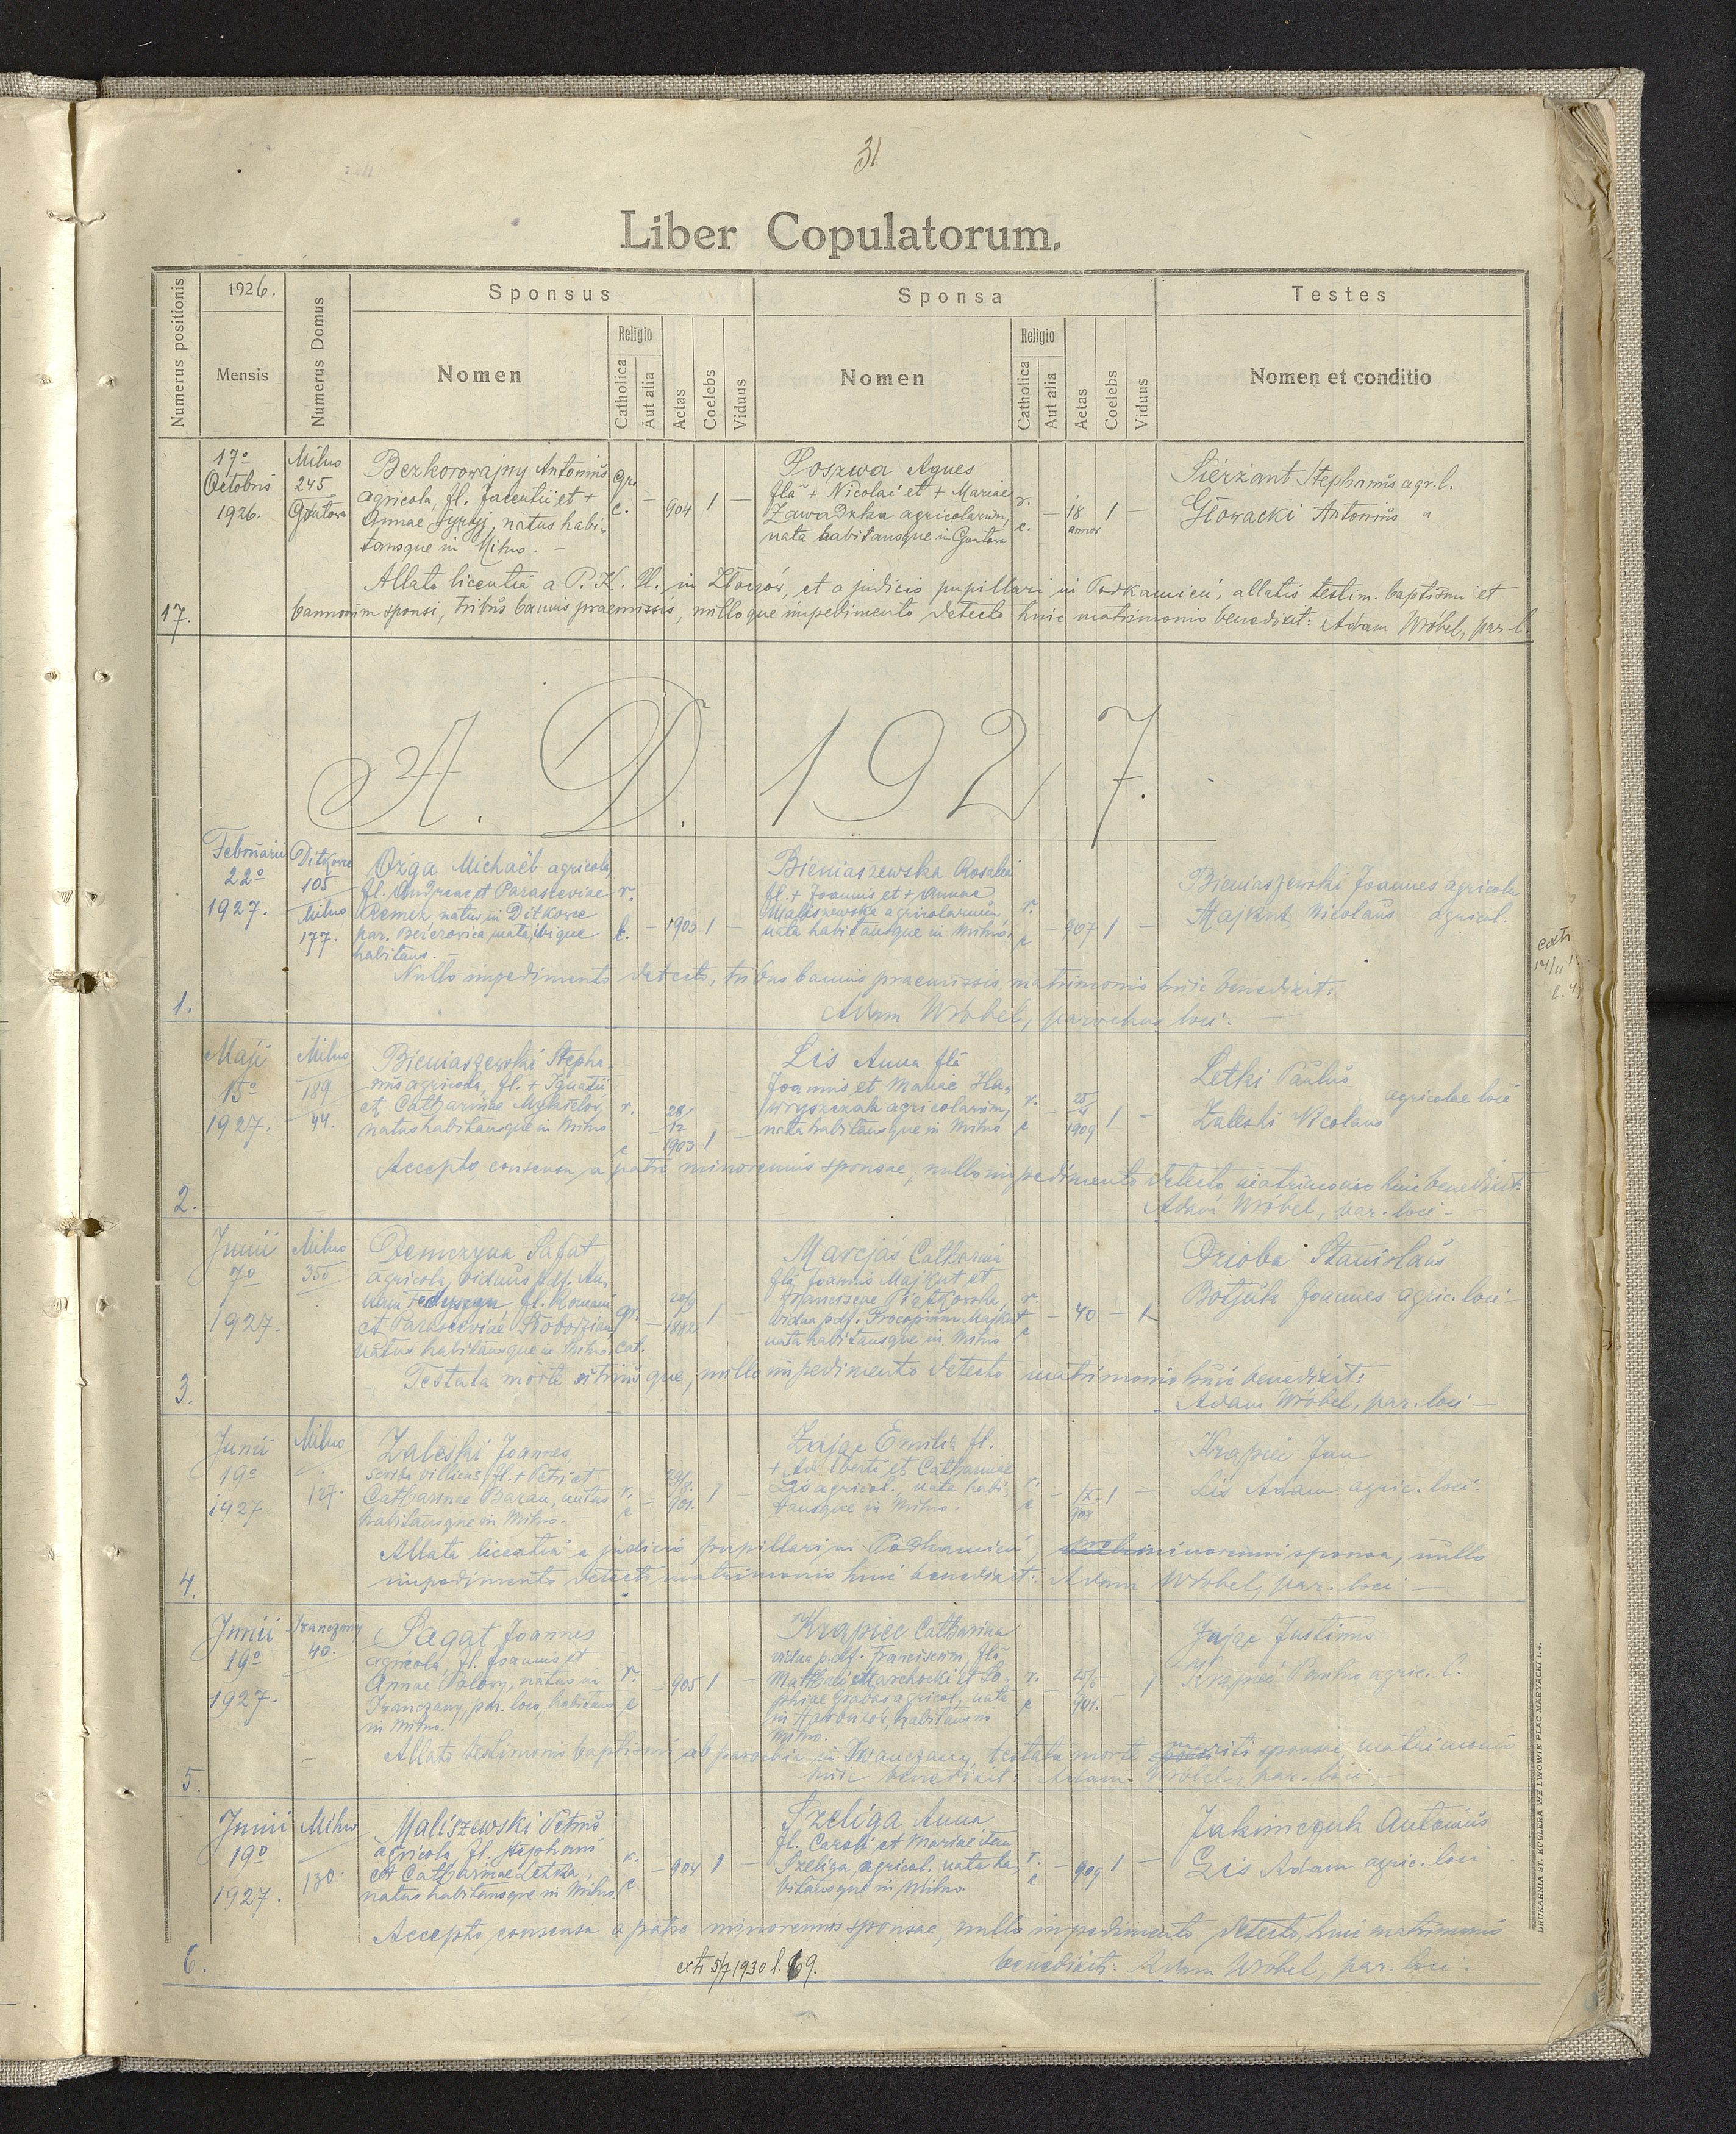 31
Liber Copulatorum.
Numerus positionis
1926.
Mensis
Numerus Domus
Sponsus
Nomen
Religio
Catholica
Aut alia
Aetas
Coelebs
Viduus
Sponsa
Nomen
Religio
Catholica
Aut alia
Aetas
Coelebs
Viduus
Testes
Nomen et conditio
17.
17º
Octobris
1926.
Milno
245
Gontowa
Bezkorowajny Antonius
agricola, fl. Jacentii et +
Annae, natus habi-
tansque in Milno. -
gr.
c.
-
904
1
-
Poszwa Agnes
fla + Nicolai et + Mariae
Zawadzka agricolarum,
nata habitansque in Gontowa
r.
c.
-
18
annor
1
-
Sierżant Stephanus agr. l.
Głowacki Antonius "
Allata licentia a P. K. U. in Złoczów, et a judicio pupillari in Podkamień, allatis testim. baptismi et
bannorum sponsi, tribus bannis praemissis, nulloque impedimento detecto huic matrimonio benedixit: Adam Wróbel, par. l.
A. D. 1927.
1.
Februarii
22º
1927.
Ditkowce
105
Milno
177.
Ożga Michaël agricola,
fl. Andreae et Parasceviae
Remez, natus in Ditkowce
par.
habitans. -
r.
c.
-
1903
1
-
Bieniaszewska Rosalia
fl. + Joannis et + Annae
Maliszewska agricolarum,
nata habitansque in Milno.
r.
c
-
907
1
-
Bieniaszewski Joannes agricola
Majkut Nicolaus agricol.
Nullo impedimento detecto, tribus bannis praemissis, matrimonio huic benedixit:
Adam Wróbel, parochus loci. -
2.
Maji
15º
1927.
Milno
189
44.
Bieniaszewski Stepha-
nus agricola, fl. + Ignatii
et Catharinae
natus habitansque in Milno
r.
c
-
28/
12
1903
1
-
Lis Anna fla
Joannis et Mariae Ha-
wryszczak agricolarum,
nata habitansque in Milno
r.
c
-
1909
1
-
Letki Paulus
agricolae loci
Zaleski Nicolaus
Accepto consensu a patre minorennis sponsae, nullo impedimento detecto matrimonio huic benedixit:
Adam Wróbel, par. loci -
3.
Junii
7º
1927.
Milno
355
Demczyna Jafat
agricola, viduus p. df. An-
nam fl. Romani
et Parasceviae
natus habitansque in Milno.
gr.
cat.
-
1882
1
-
Marcjaś Catharina
fla Joannis Majkut et
Franciscae Piątkowska,
vidua p. df. Procopium Majkut
nata habitansque in Milno
r.
c
-
40
-
1
Dzioba Stanislaus
Botjuk Joannes agric. loci -
Testata morte utriusque, nullo impedimento detecto matrimonio huic benedixit:
Adam Wróbel, par. loci -
4.
Junii
19º
1927
Milno
127.
Zaleski Joannes,
scriba villicus, fl. + Petri et
Catharinae Baran, natus
habitansque in Milno. -
r.
c
-
901.
1
-
Zając Emilia fl.
+ Adalberti et Catharinae
Lis agricol., nata habi-
tansque in Milno.
r.
c
-
IX.
908
1
-
Krąpiec Jan
Lis Adam agric. loci.
Allata licentia a judicio pupillari in Podkamień, minorenni sponsa, nullo
impedimento detecto matrimonio huic benedixit: Adam Wróbel, par. loci -
5.
Junii
19º
1927.
Iwanczany
40.
Sagat Joannes
agricola, fl. Joannis et
Annae, natus in
Iwanczany, par. loco, habitans
in Milno.
r.
c
-
905
1
-
Krąpiec Catharina
vidua p. df. Franciscum, fla
Mathaei Marchocki et So-
phiae Grabas agricol., nata
in, habitans in
Milno.
r.
c
-
901.
-
1
Zając Justinus
Krąpiec Paulus agric. l.
Allato testimonio baptismi ab parochia in Iwanczany, testata morte mariti sponsae, matrimonio
huic benedixit: Adam Wróbel, par. loci. -
6.
Junii
19º
1927.
Milno
130.
Maliszewski Petrus
agricola, fl. Stephani
et Catharinae Letka,
natus habitansque in Milno
r.
c
-
904
1
-
Szeliga Anna
fl. Caroli et Mariae item
Szeliga, agricol., nata ha-
bitansque in Milno.
r.
c
-
909
1
-
Jakimczuk Antonius
Lis Adam agric. loci
Accepto consensu a patre minorennis sponsae, nullo impedimento detecto, huic matrimonio
benedixit: Adam Wróbel, par. loci.
extr 5/7 1930 l. 69.
DRUKARNIA ST. KÜBLERA WE LWOWIE PLAC MARYACKI L.